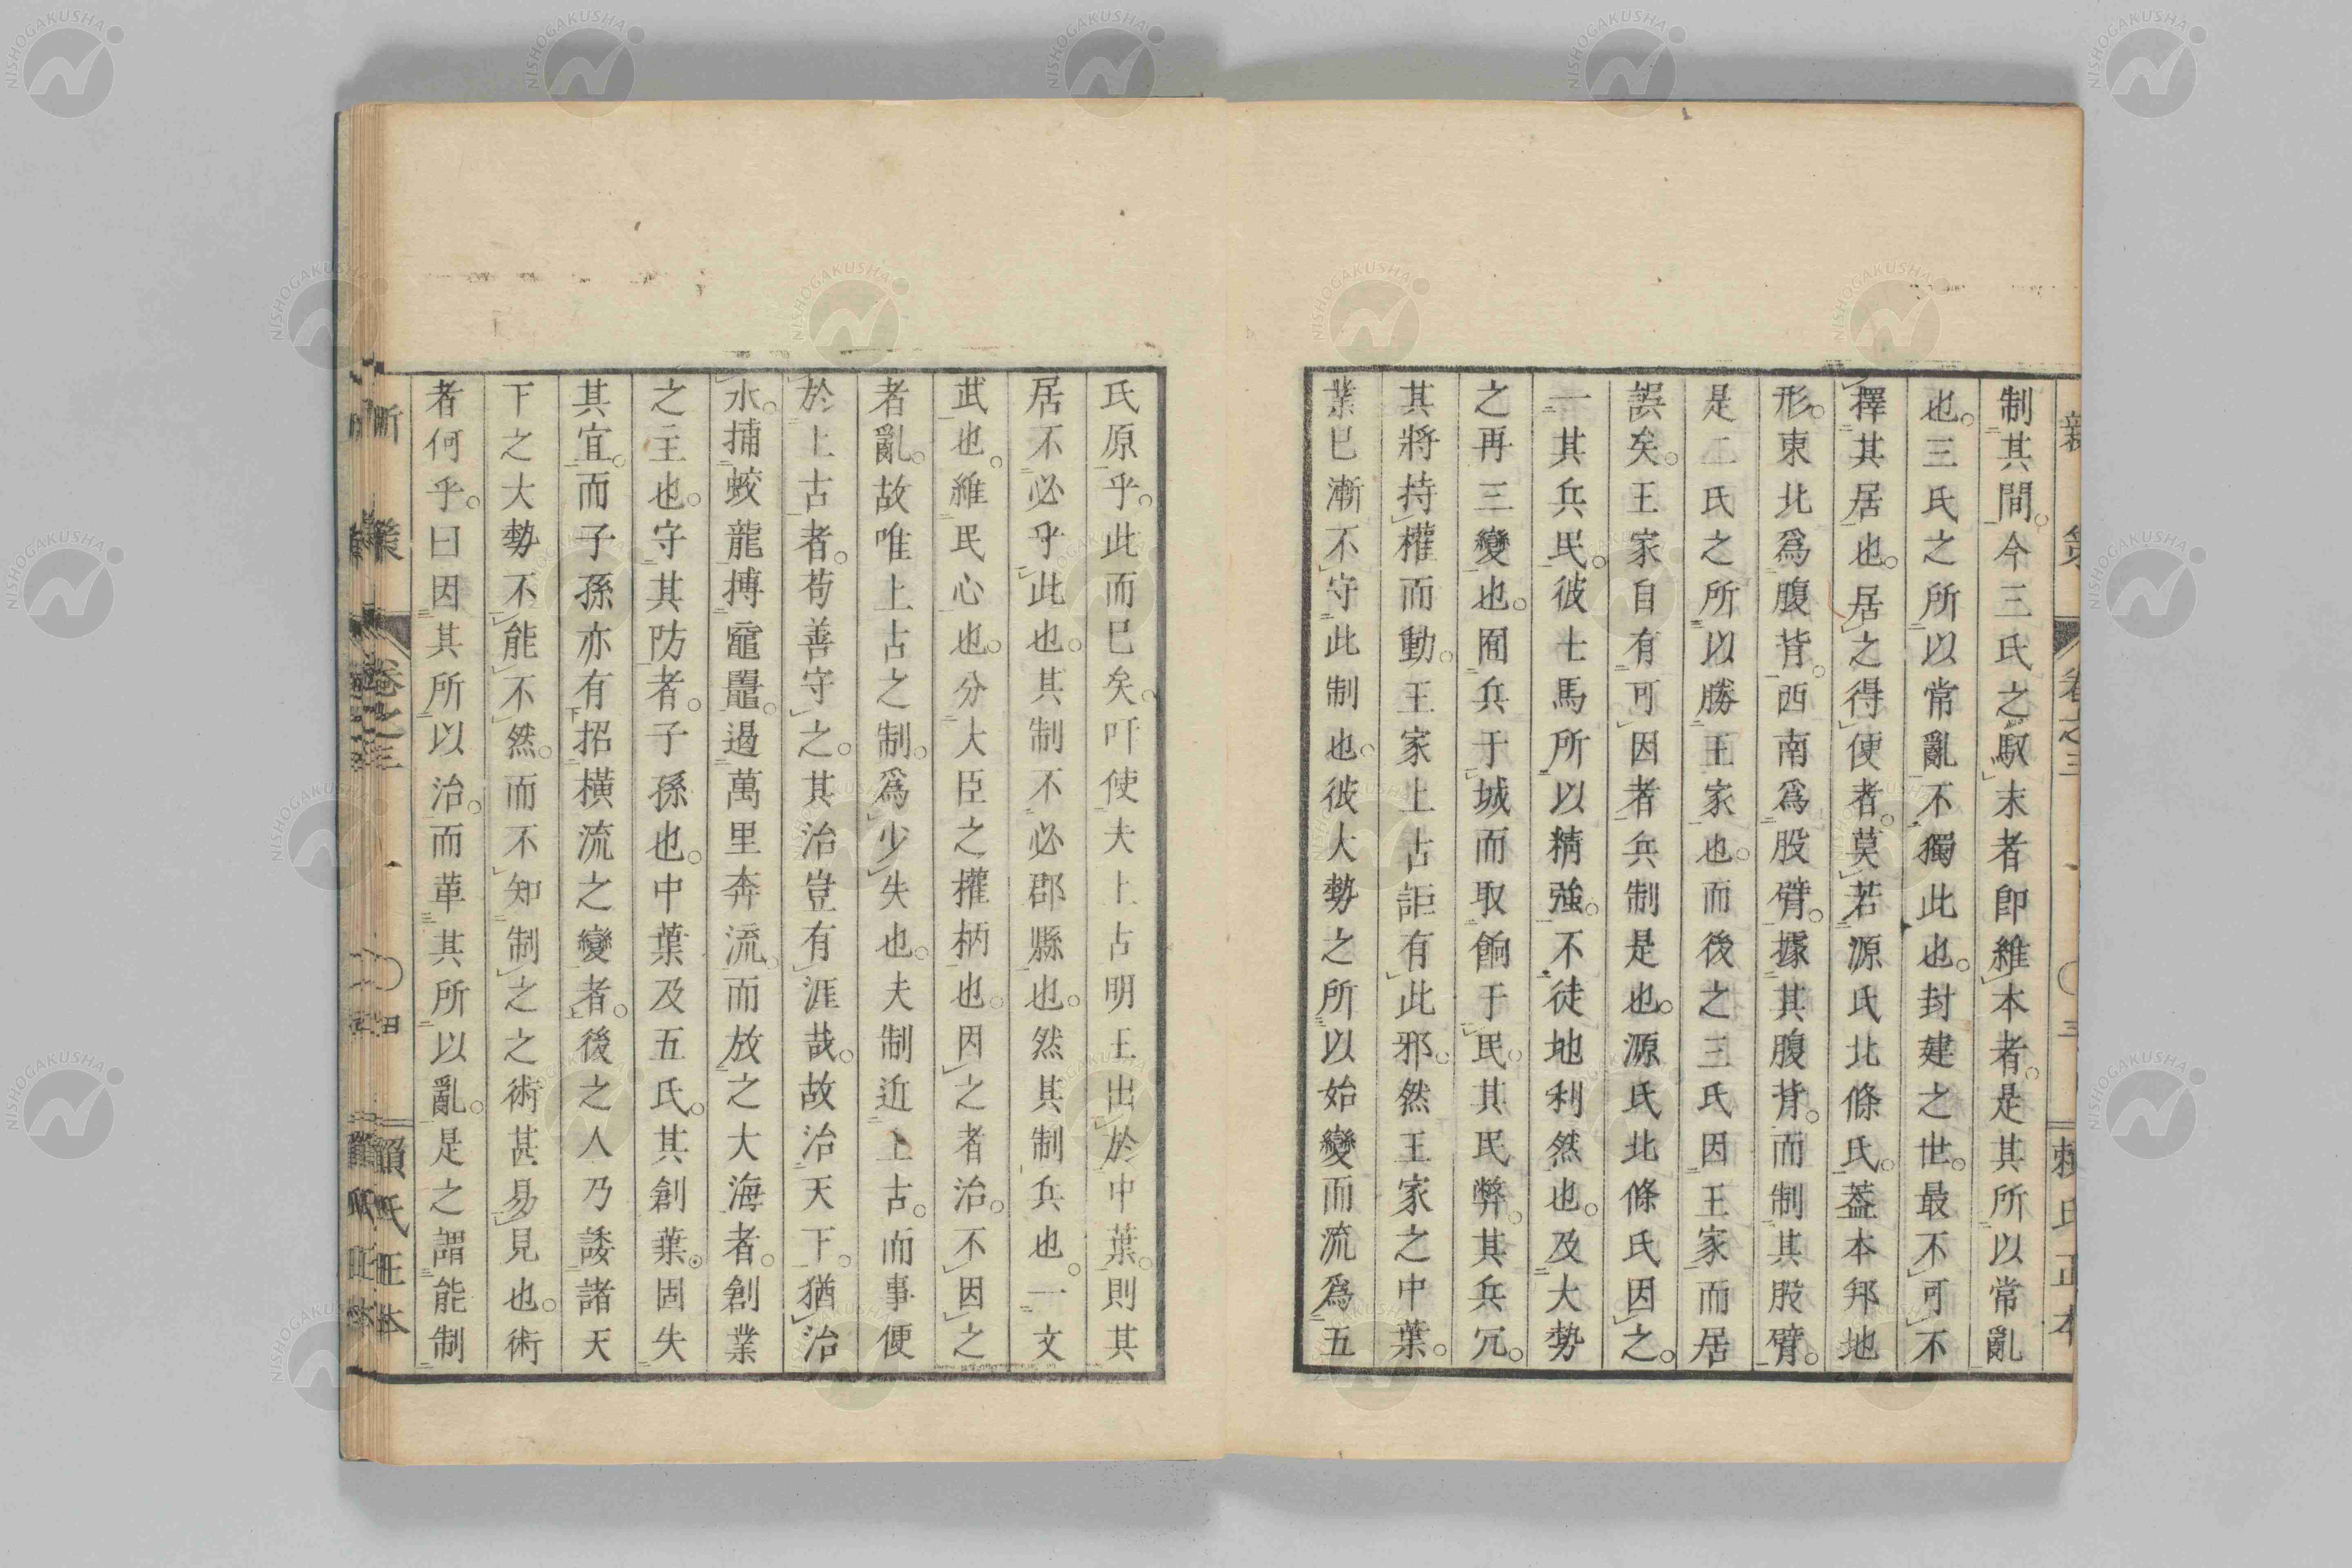 制其間。今三氏之馭末者卽維本者。是其所以常亂
也。三氏之所以常亂不獨此也。封建之世。最不可不
擇其居也。居之得便者。莫若源氏北條氏。蓋本邦地
形。東北爲腹背。西南爲股臂。據其腹背。而制其股臂。
是二氏之所以勝王家也。而後之三氏因王家而居
誤矣。王家自有可因者。兵制是也。源氏北條氏因之。
一其兵民。彼士馬所以精強。不徒地利然也。及大勢
之再三變也。囿兵于城而取餉于民。其民弊。其兵冗。
其將持權而動。王家上古詎有此邪。然王家之中葉。
業已漸不守此制也。彼大勢之所以始變而流爲五
氏原乎。此而已矣。吁使夫上古明王出於中葉。則其
居不必乎此也。其制不必郡縣也。然其制兵也。一文
武也。維民心也。分大臣之權柄也。因之者治。不因之
者亂。故唯上古之制。爲少失也。夫制近上古。而事便
於上古者。苟善守之。其治豈有涯哉。故治天下。猶治
水。捕蛟龍搏黿鼉。遏萬里奔流。而放之大海者。創業
之主也。守其防者。子孫也。中葉及五氏。其創業。固失
其宜。而子孫亦有招橫流之變者。後之人乃諉諸天
下之大勢不能不然。而不知制之之術甚易見也。術
者何乎。曰因其所以治。而革其所以亂。是之謂能制
新策 卷之三 三 賴氏正本
NISHOGAKUSHA